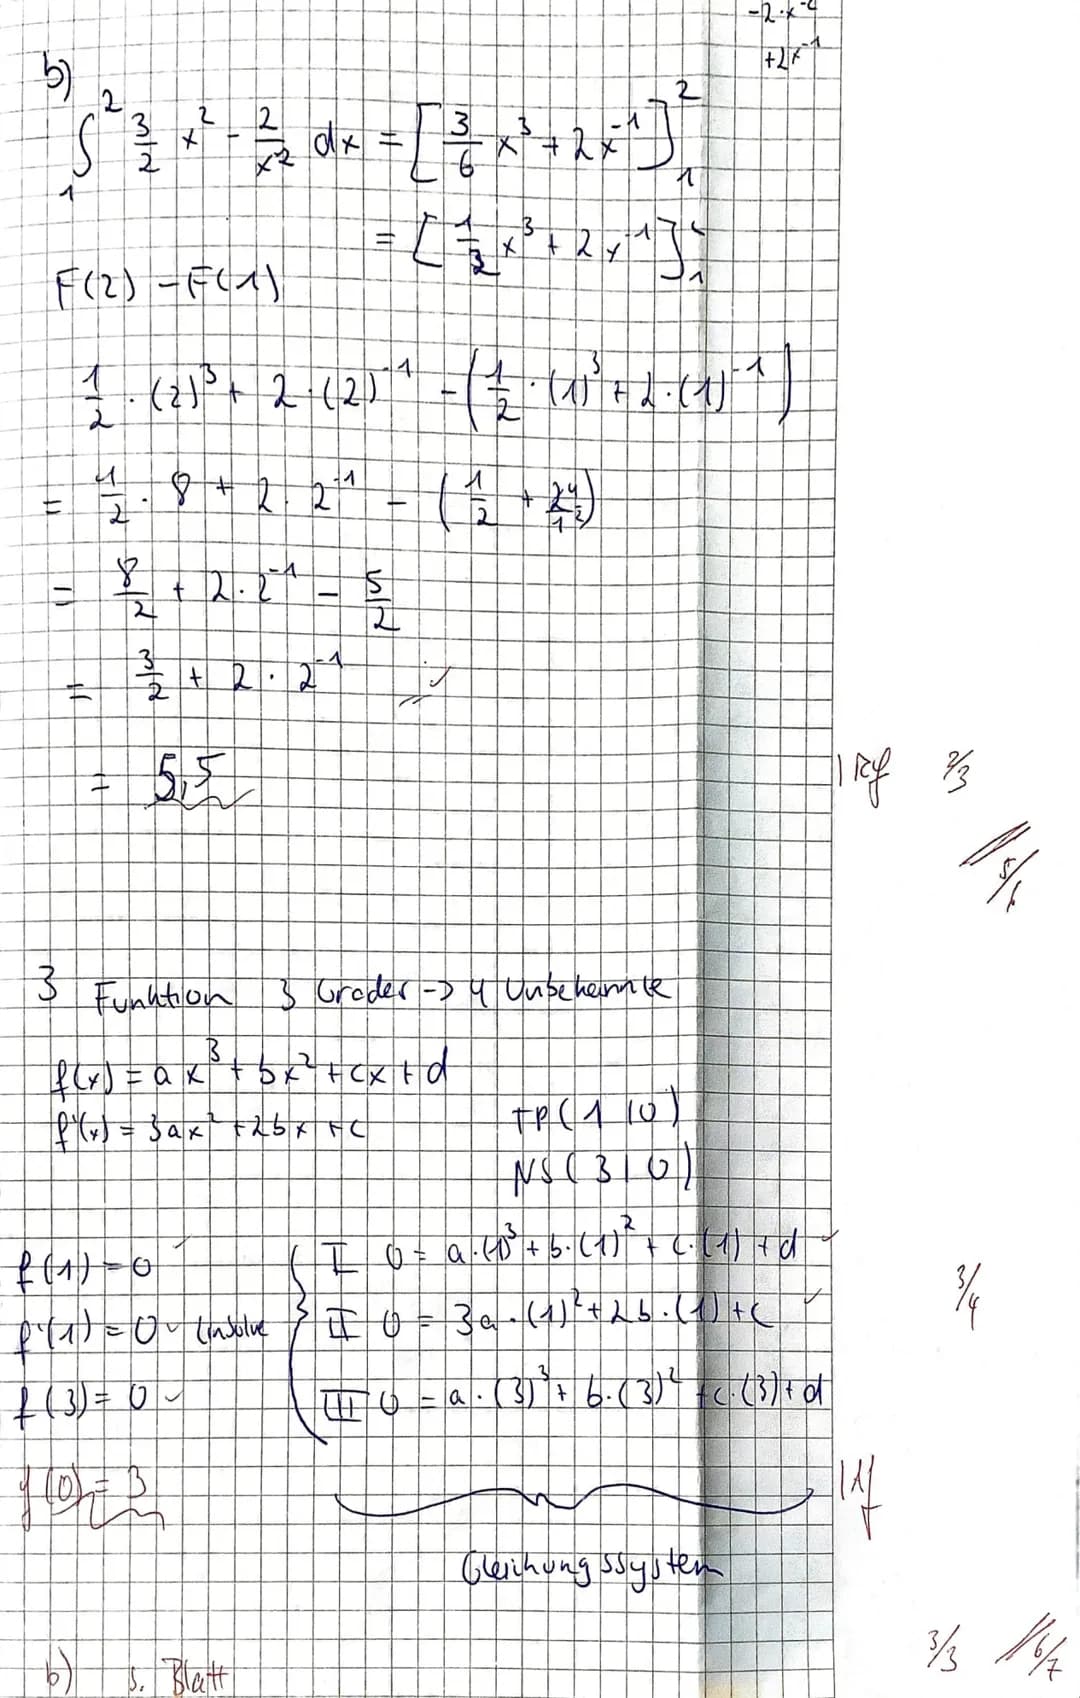 -2·x⁻²
+2x⁻¹
b)
∫₁² 3/2 x² - 2/x² dx = [3/6 x³ + 2x⁻¹]₁²
= [1/2 x³ + 2x⁻¹]₁
F(2) - F(1)
1/2 · (2)³ + 2·(2)⁻¹ - (1/2 · (1)³ + 2·(1)⁻¹)
= 1/2 · 8 + 2 · 2⁻¹ - (1/2 + 4/2)
= 8/2 + 2·2⁻¹ - 5/2
= 3/2 + 2 · 2⁻¹ ✓
= 5,5
1 Rf 2/3
5/6
3 Funktion 3 Grades -> 4 Unbekannte
f(x) = ax³ + bx² + cx + d
f'(x) = 3ax² + 2bx + c
TP(1|0)
NS(3|0)
f(1) = 0 I 0 = a·(1)³ + b·(1)² + c·(1) + d ✓
f'(1) = 0 ✓ linsolve II 0 = 3a·(1)² + 2b·(1) + c ✓
f(3) = 0 ✓ III 0 = a·(3)³ + b·(3)² + c·(3) + d
3/4
f(0) = 3
Gleichungssystem
3/3 6/7
b) s. Blatt